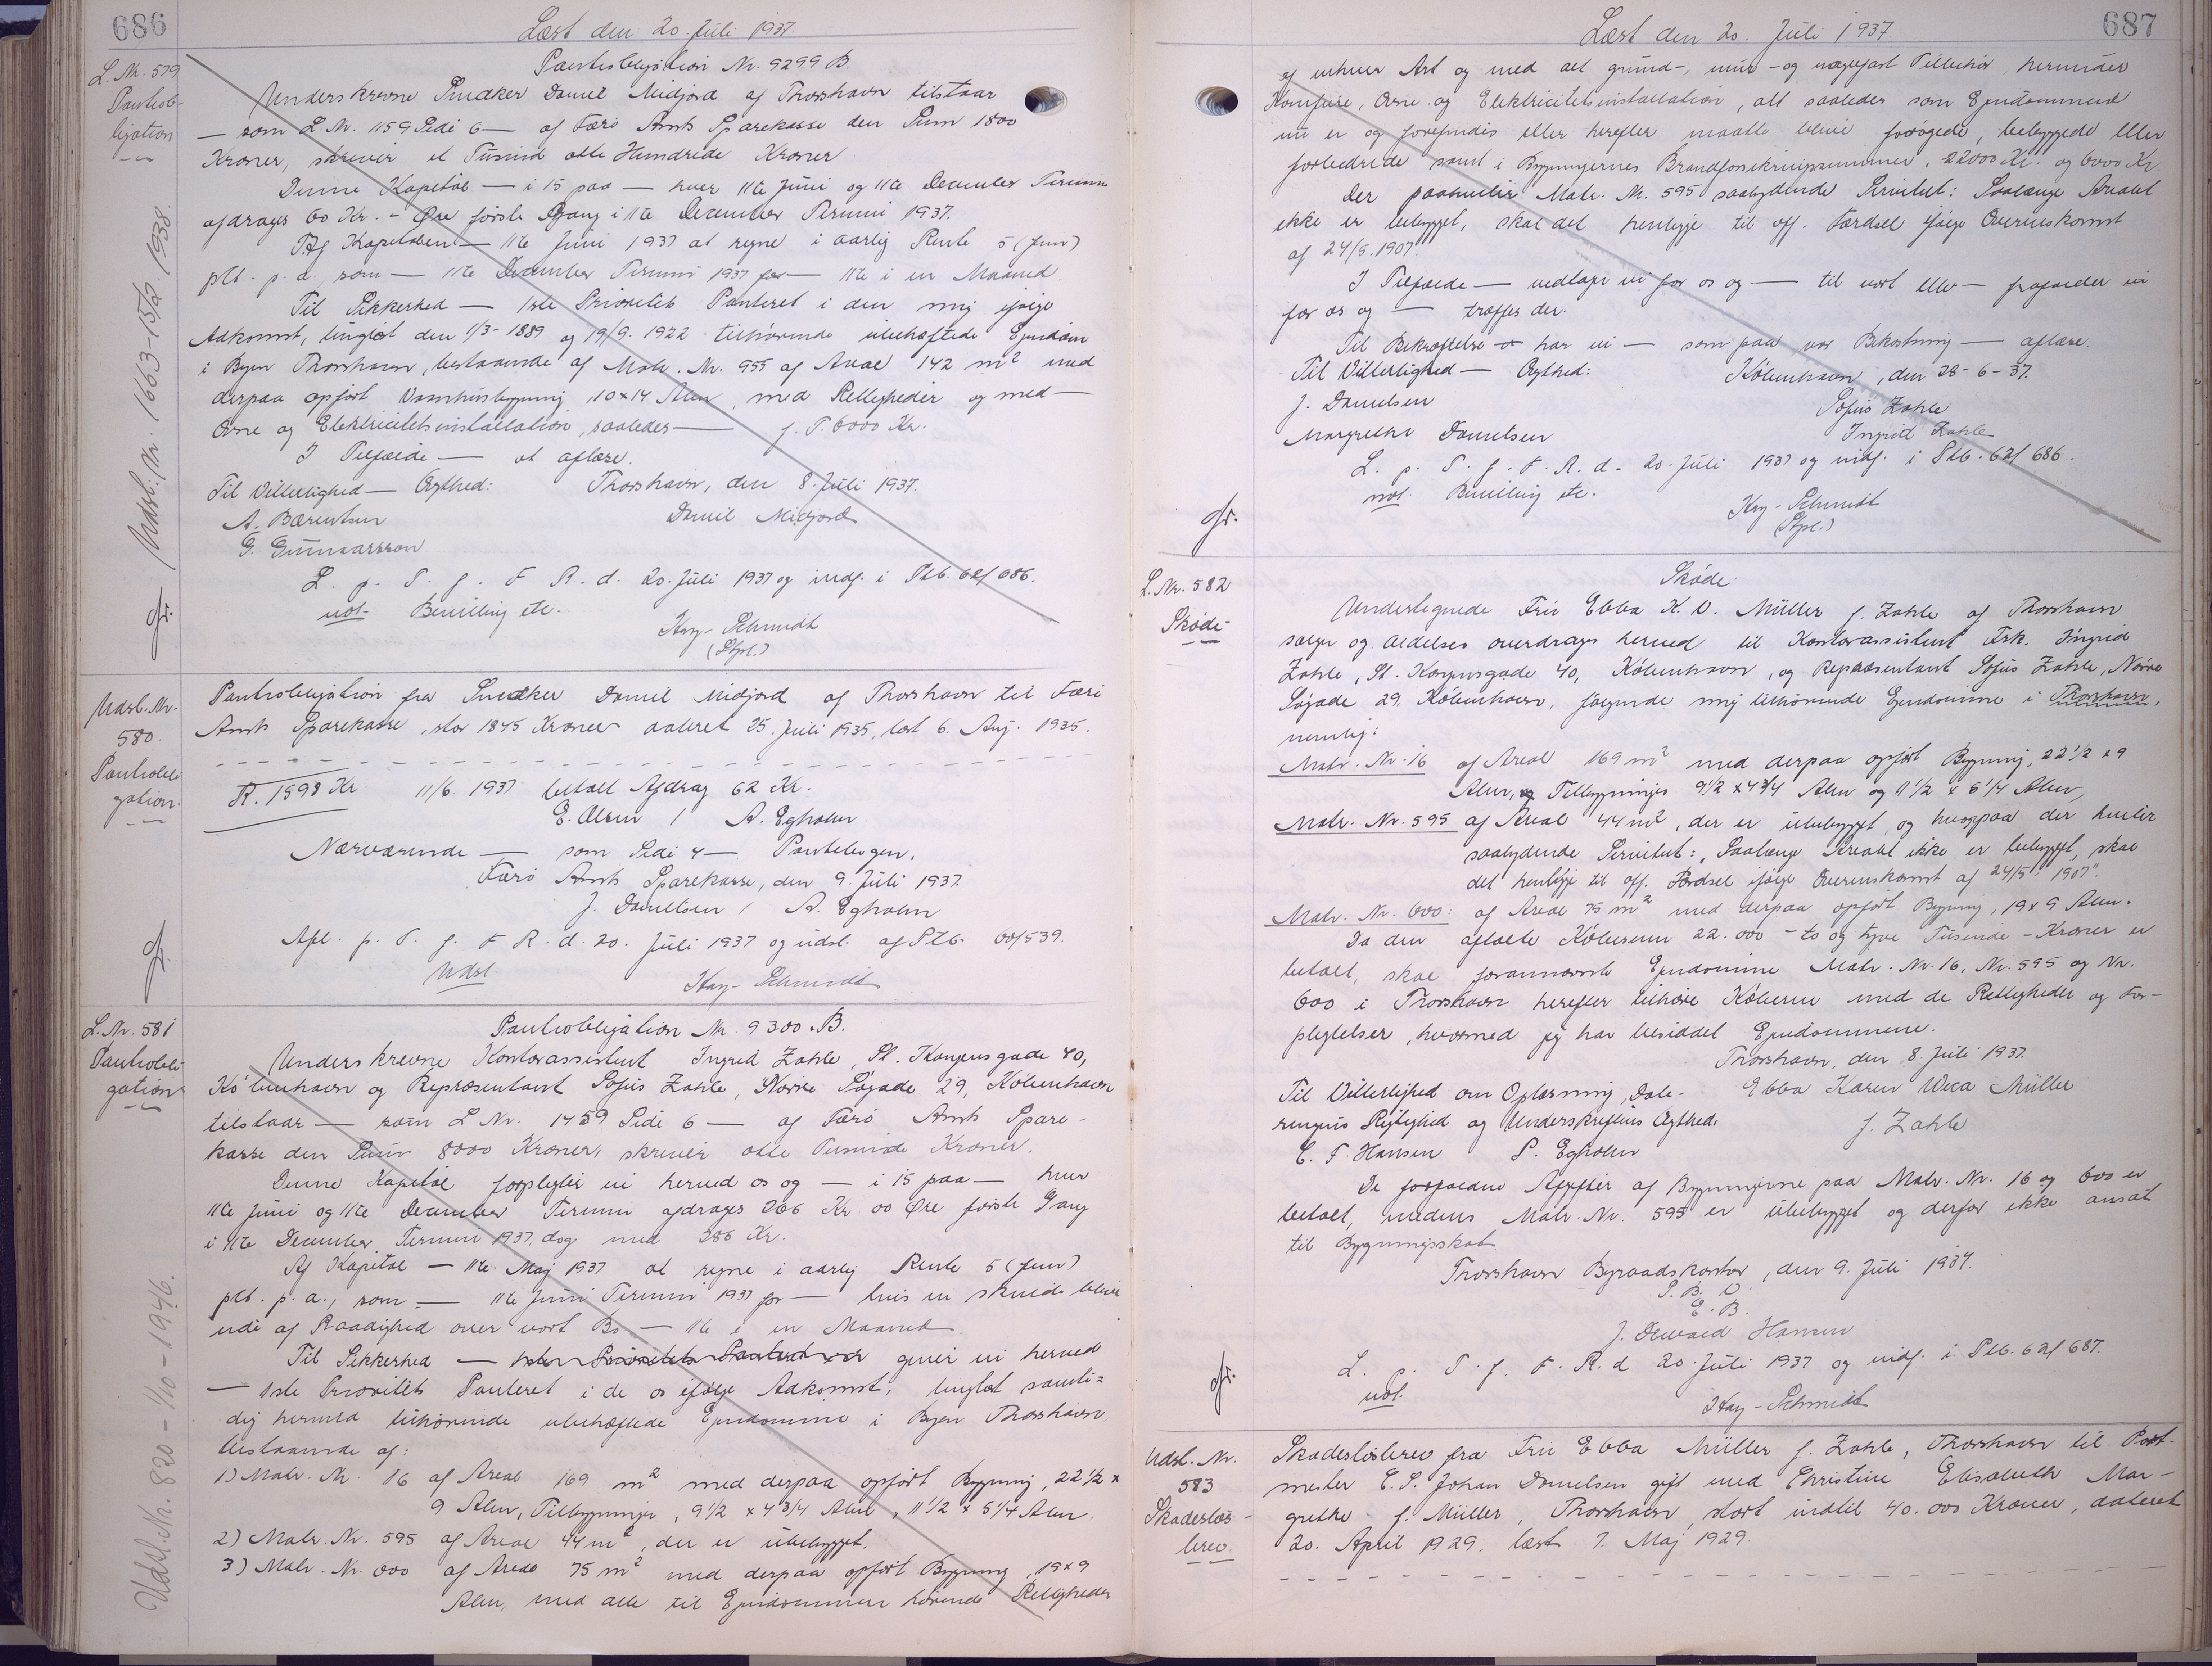 686
Læst den 20. Juli 1937.
L. Nr. 579
Pantob-
ligation
Pantobligation Nr. 9299 B.
Underskrevne Snedker Daniel Midjord af Thorshavn tilstaar
— som L Nr. 1159 Side 6 — af Færø Amts Sparekasse den Sum 1800
Kroner, skriver et Tusind otte Hundrede Kroner
Denne Kapital — i 15 paa — hver 11te Juni og 11te December Termin
afdrages 60 Kr. - Øre første Gang i 11te December Termin 1937.
Af Kapitalen — 11te Juni 1937 at regne i aarlig Rente 5 (fem)
pct. p. a., som — 11te December Termin 1937 før — 11te i en Maaned
Til Sikkerhed — 1ste Prioritets Panteret i den mig ifølge
Adkomst, tinglæst den 1/3 - 1889 og 19/9. 1922 tilhørende ubehæftede Ejendom
i Byen Thorshavn, bestaaende af Matr. Nr. 955 af Areal 142 m² med
derpaa opført Vaanhusbygning 10 x 14 Alen, med Rettigheder og med —
Ovne og Elektricitetsinstallation, saaledes — f. T. 6000 Kr.
I Tilfælde — at aflæse.
Til Vitterlighed — Ægthed: Thorshavn, den 8. Juli 1937.
A. Bærentsen Daniel Midjord
G. Gunnarsson
L. p. T. f. F R. d. 20. Juli 1937 og indf. i Ptb. 62/686.
not. Bevilling etc.
Kay-Schmidt
(Stpl.)
Udsl. Nr. 1663-15/12 1938.
Udsl. Nr.
580.
Pantobli
gation.
Pantobligation fra Snedker Daniel Midjord af Thorshavn til Færø
Amts Sparekasse, stor 1845 Kroner dateret 25. Juli 1935, læst 6. Aug. 1935.
R. 1598 Kr 11/6 1937 betalt Afdrag 62 Kr.
E. Olsen / A. Egholm
Nærværende — som Side 4 — Pantebogen.
Færø Amts Sparekasse, den 9. Juli 1937.
J. Danielsen / A. Egholm
Afl. p. T. f. F R. d. 20. Juli 1937 og udsl. af Ptb. 60/539.
Udsl. Kay-Schmidt
L. Nr. 581
Pantobli
gation
Pantobligation Nr 9300. B.
Underskrevne Kontorassistent Ingrid Zahle, St. Kongensgade 40,
København og Repræsentant Sofus Zahle, Nørre Søgade 29, København
tilstaar — som L Nr. 1459 Side 6 — af Færø Amts Spare-
kasse den Sum 8000 Kroner, skriver otte Tusinde Kroner.
Denne Kapital forpligter vi herved os og — i 15 paa — hver
11te Juni og 11te December Termin afdrages 266 Kr. 00 Øre første Gang
i 11te December Termin 1937, dog med 286 Kr.
Af Kapital — 11te Maj 1937 at regne i aarlig Rente 5 (fem)
pct. p. a., som — 11te Juni Termin 1937 før — hvis en skulde blive
ude af Raadighed over vort Bo — 11te i en Maaned
Til Sikkerhed — giver vi herved
— 1ste Prioritets Panteret i de os ifølge Adkomst, tinglæst samti=
dig hermed tilhørende ubehæftede Ejendomme i Byen Thorshavn,
bestaaende af:
1) Matr. Nr. 16 af Areal 169 m² med derpaa opført Bygning, 22 1/2 x
9 Alen, Tilbygninger, 9 1/2 x 4 3/4 Alen, 11 1/2 x 5 1/4 Alen
2) Matr. Nr. 595 af Areal 44 m², der er ubebygget.
3) Matr. Nr. 600 af Areal 75 m² med derpaa opført Bygning, 19 x 9
Alen, med alle til Ejendommen hørende Rettigheder
Udsl. Nr. 820-1/10-1946.
687
Læst den 20. Juli 1937
af enhver Art og med alt grund-, mur- og nagelfast Tilbehør, herunder
Komfure, Ovne og Elektricitetsinstallation, alt saaledes som Ejendommene
nu er og forefindes eller herefter maatte blive forøgede, bebyggede eller
forbedrede samt i Bygningernes Brandforsikringssummer, 22000 Kr. og 6000 Kr.
Der paahviler Matr. Nr. 595 saalydende Servitut: Saalænge Arealet
ikke er bebygget, skal det henligge til off. Færdsel ifølge Overenskomst
af 24/5. 1907.
I Tilfælde — vedtage vi for os og — til vort eller — frafalder vi
for os og — træffes der.
Til Bekræftelse har vi — som paa vor Bekostning — aflæse.
Til Vitterlighed — Ægthed: København, den 28-6-37.
J. Danielsen Sofus Zahle
Margrethe Danielsen Ingrid Zahle
L. p. T. f. F. R. d. 20. Juli 1937 og indf. i Ptb. 62/686.
not. Bevilling etc.
Kay-Schmidt
(Stpl.)
L. Nr. 582
Skøde
Skøde.
Undertegnede Fru Ebba K. V. Müller f. Zahle af Thorshavn
sælger og aldeles overdrager herved til Kontorassistent Frk. Ingrid
Zahle, St. Kongensgade 40, København, og Repræsentant Sofus Zahle, Nørre
Søgade 29, København, følgende mig tilhørende Ejendomme i Thorshavn,
nemlig:
Matr. Nr. 16 af Areal 169 m² med derpaa opført Bygning, 22 1/2 x 9
Alen, Tilbygninger 9 1/2 x 4 3/4 Alen og 11 1/2 x 5 1/4 Alen,
Matr. Nr. 595 af Areal 44 m², der er ubebygget, og hvorpaa der hviler
saalydende Servitut: "Saalænge Arealet ikke er bebygget, skal
det henligge til off. Færdsel ifølge Overenskomst af 24/5. 1907".
Matr. Nr. 600: af Areal 75 m² med derpaa opført Bygning, 19 x 9 Alen.
Da den aftalte Købesum 22.000 - to og tyve Tusende - Kroner er
betalt, skal forannævnte Ejendomme Matr. Nr. 16, Nr. 595 og Nr.
600 i Thorshavn herefter tilhøre Køberne med de Rettigheder og For-
pligtelser, hvormed jeg har besiddet Ejendommene.
Thorshavn, den 8. Juli 1937.
Til Vitterlighed om Oplæsning, Date- Ebba Karen Müller
ringens Rigtighed og Underskriftens Ægthed. f. Zahle
C. F. Hansen P. Egholm
De forfaldne Afgifter af Bygningerne paa Matr. Nr. 16 og 600 er
betalt, medens Matr. Nr. 595 er ubebygget og derfor ikke ansat
til Bygningsskat
Thorshavn Byraadskontor, den 9. Juli 1937.
P. B. V.
E. B.
J. Hansen
L. p. T. f. F. R. d 20. Juli 1937 og indf. i Ptb. 62/687.
not.
Kay-Schmidt
Udsl. Nr.
583
Skadesløs-
brev.
Skadesløsbrev fra Fru Ebba Müller f. Zahle, Thorshavn til Post-
mester C. S. Johan Danielsen gift med Christine Elisabeth Mar-
grethe f. Müller, Thorshavn, stort indtil 40.000 Kroner, dateret
20. April 1929, læst 7. Maj 1929.